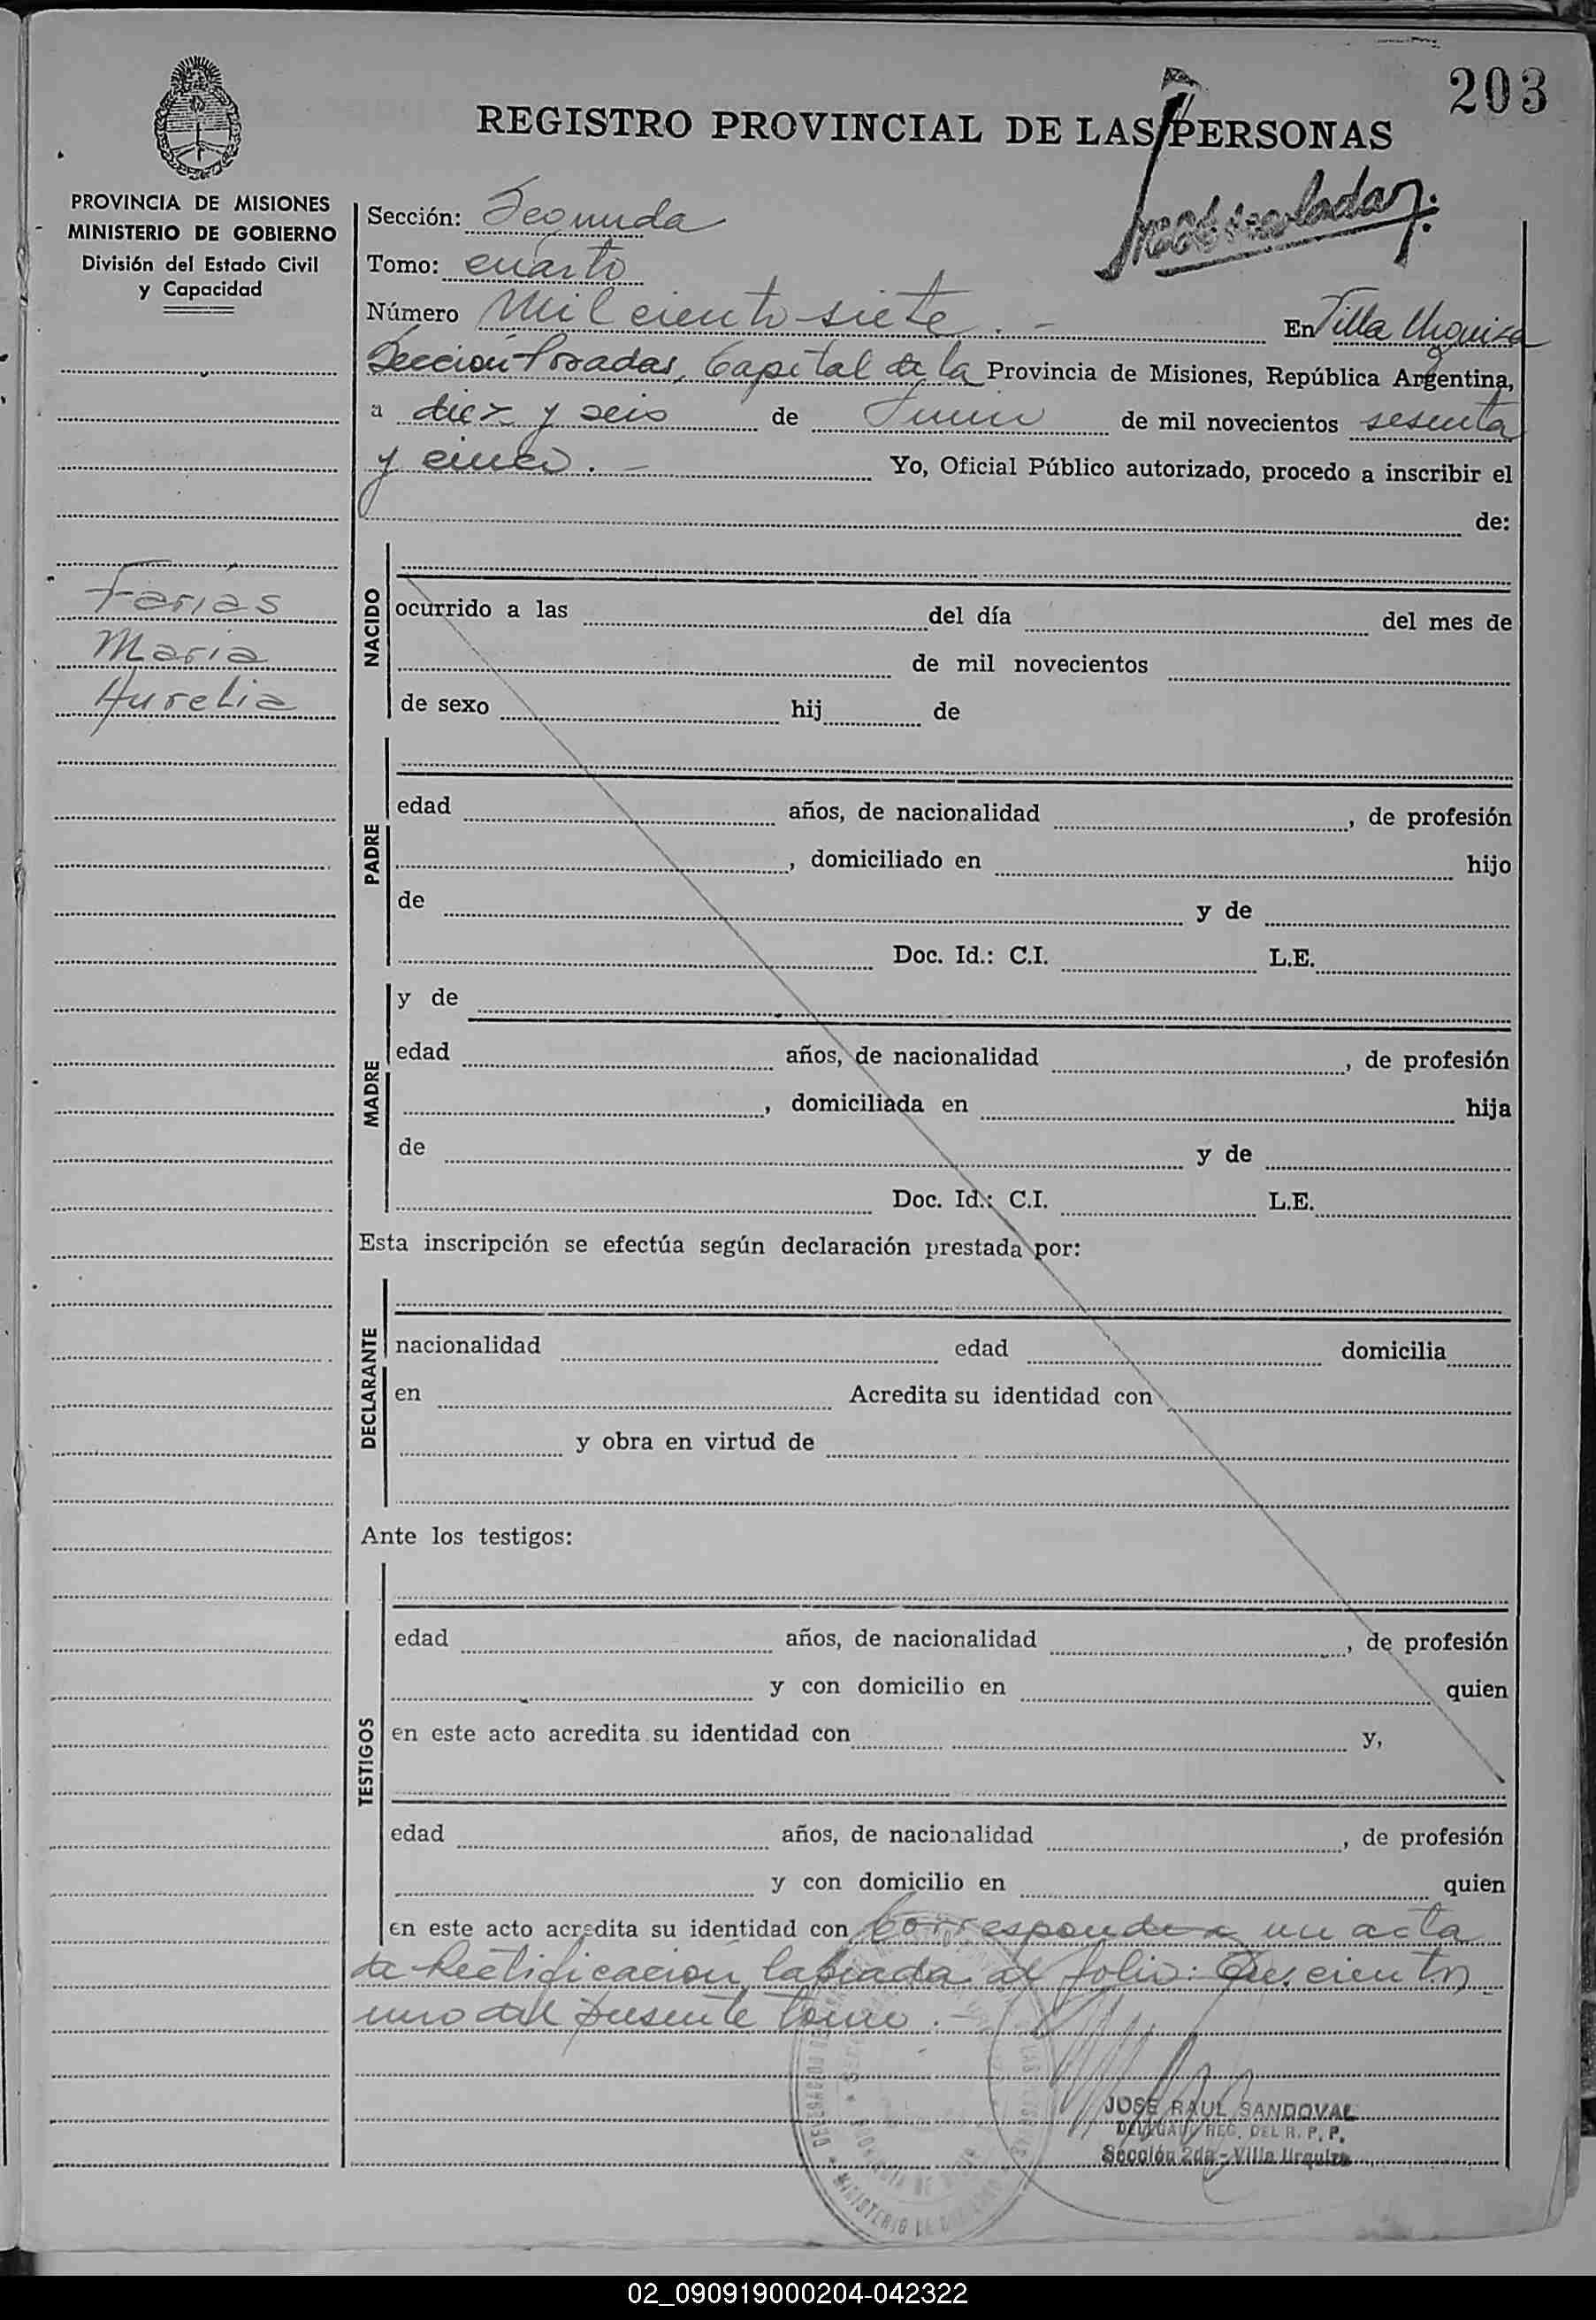 203
REGISTRO PROVINCIAL DE LAS PERSONAS
PROVINCIA DE MISIONES
MINISTERIO DE GOBIERNO
División del Estado Civil
y Capacidad
Sección: Segunda
Tomo: cuarto
Número Mil ciento siete . - En Villa Urquiza
Sección Posadas, Capital de la Provincia de Misiones, República Argentina,
a diez y seis de Junio de mil novecientos sesenta
y cinco . - Yo, Oficial Público autorizado, procedo a inscribir el
de:
Farías
María
Aurelia
NACIDO
ocurrido a las del día del mes de
de mil novecientos
de sexo hij de
PADRE
edad años, de nacionalidad , de profesión
, domiciliado en hijo
de y de
Doc. Id.: C.I. L.E.
MADRE
y de
edad años, de nacionalidad , de profesión
, domiciliada en hija
de y de
Doc. Id.: C.I. L.E.
Esta inscripción se efectúa según declaración prestada por:
DECLARANTE
nacionalidad edad domicilia
en Acredita su identidad con
y obra en virtud de
Ante los testigos:
TESTIGOS
edad años, de nacionalidad , de profesión
y con domicilio en quien
en este acto acredita su identidad con y,
edad años, de nacionalidad , de profesión
y con domicilio en quien
en este acto acredita su identidad con Corresponde a un acta
de Rectificación labrada al folio: Doscientos
uno del presente tomo . -
JOSE RAUL SANDOVAL
DELEGADO REG. DEL R. P. P.
Sección 2da - Villa Urquiza
02_090919000204-042322